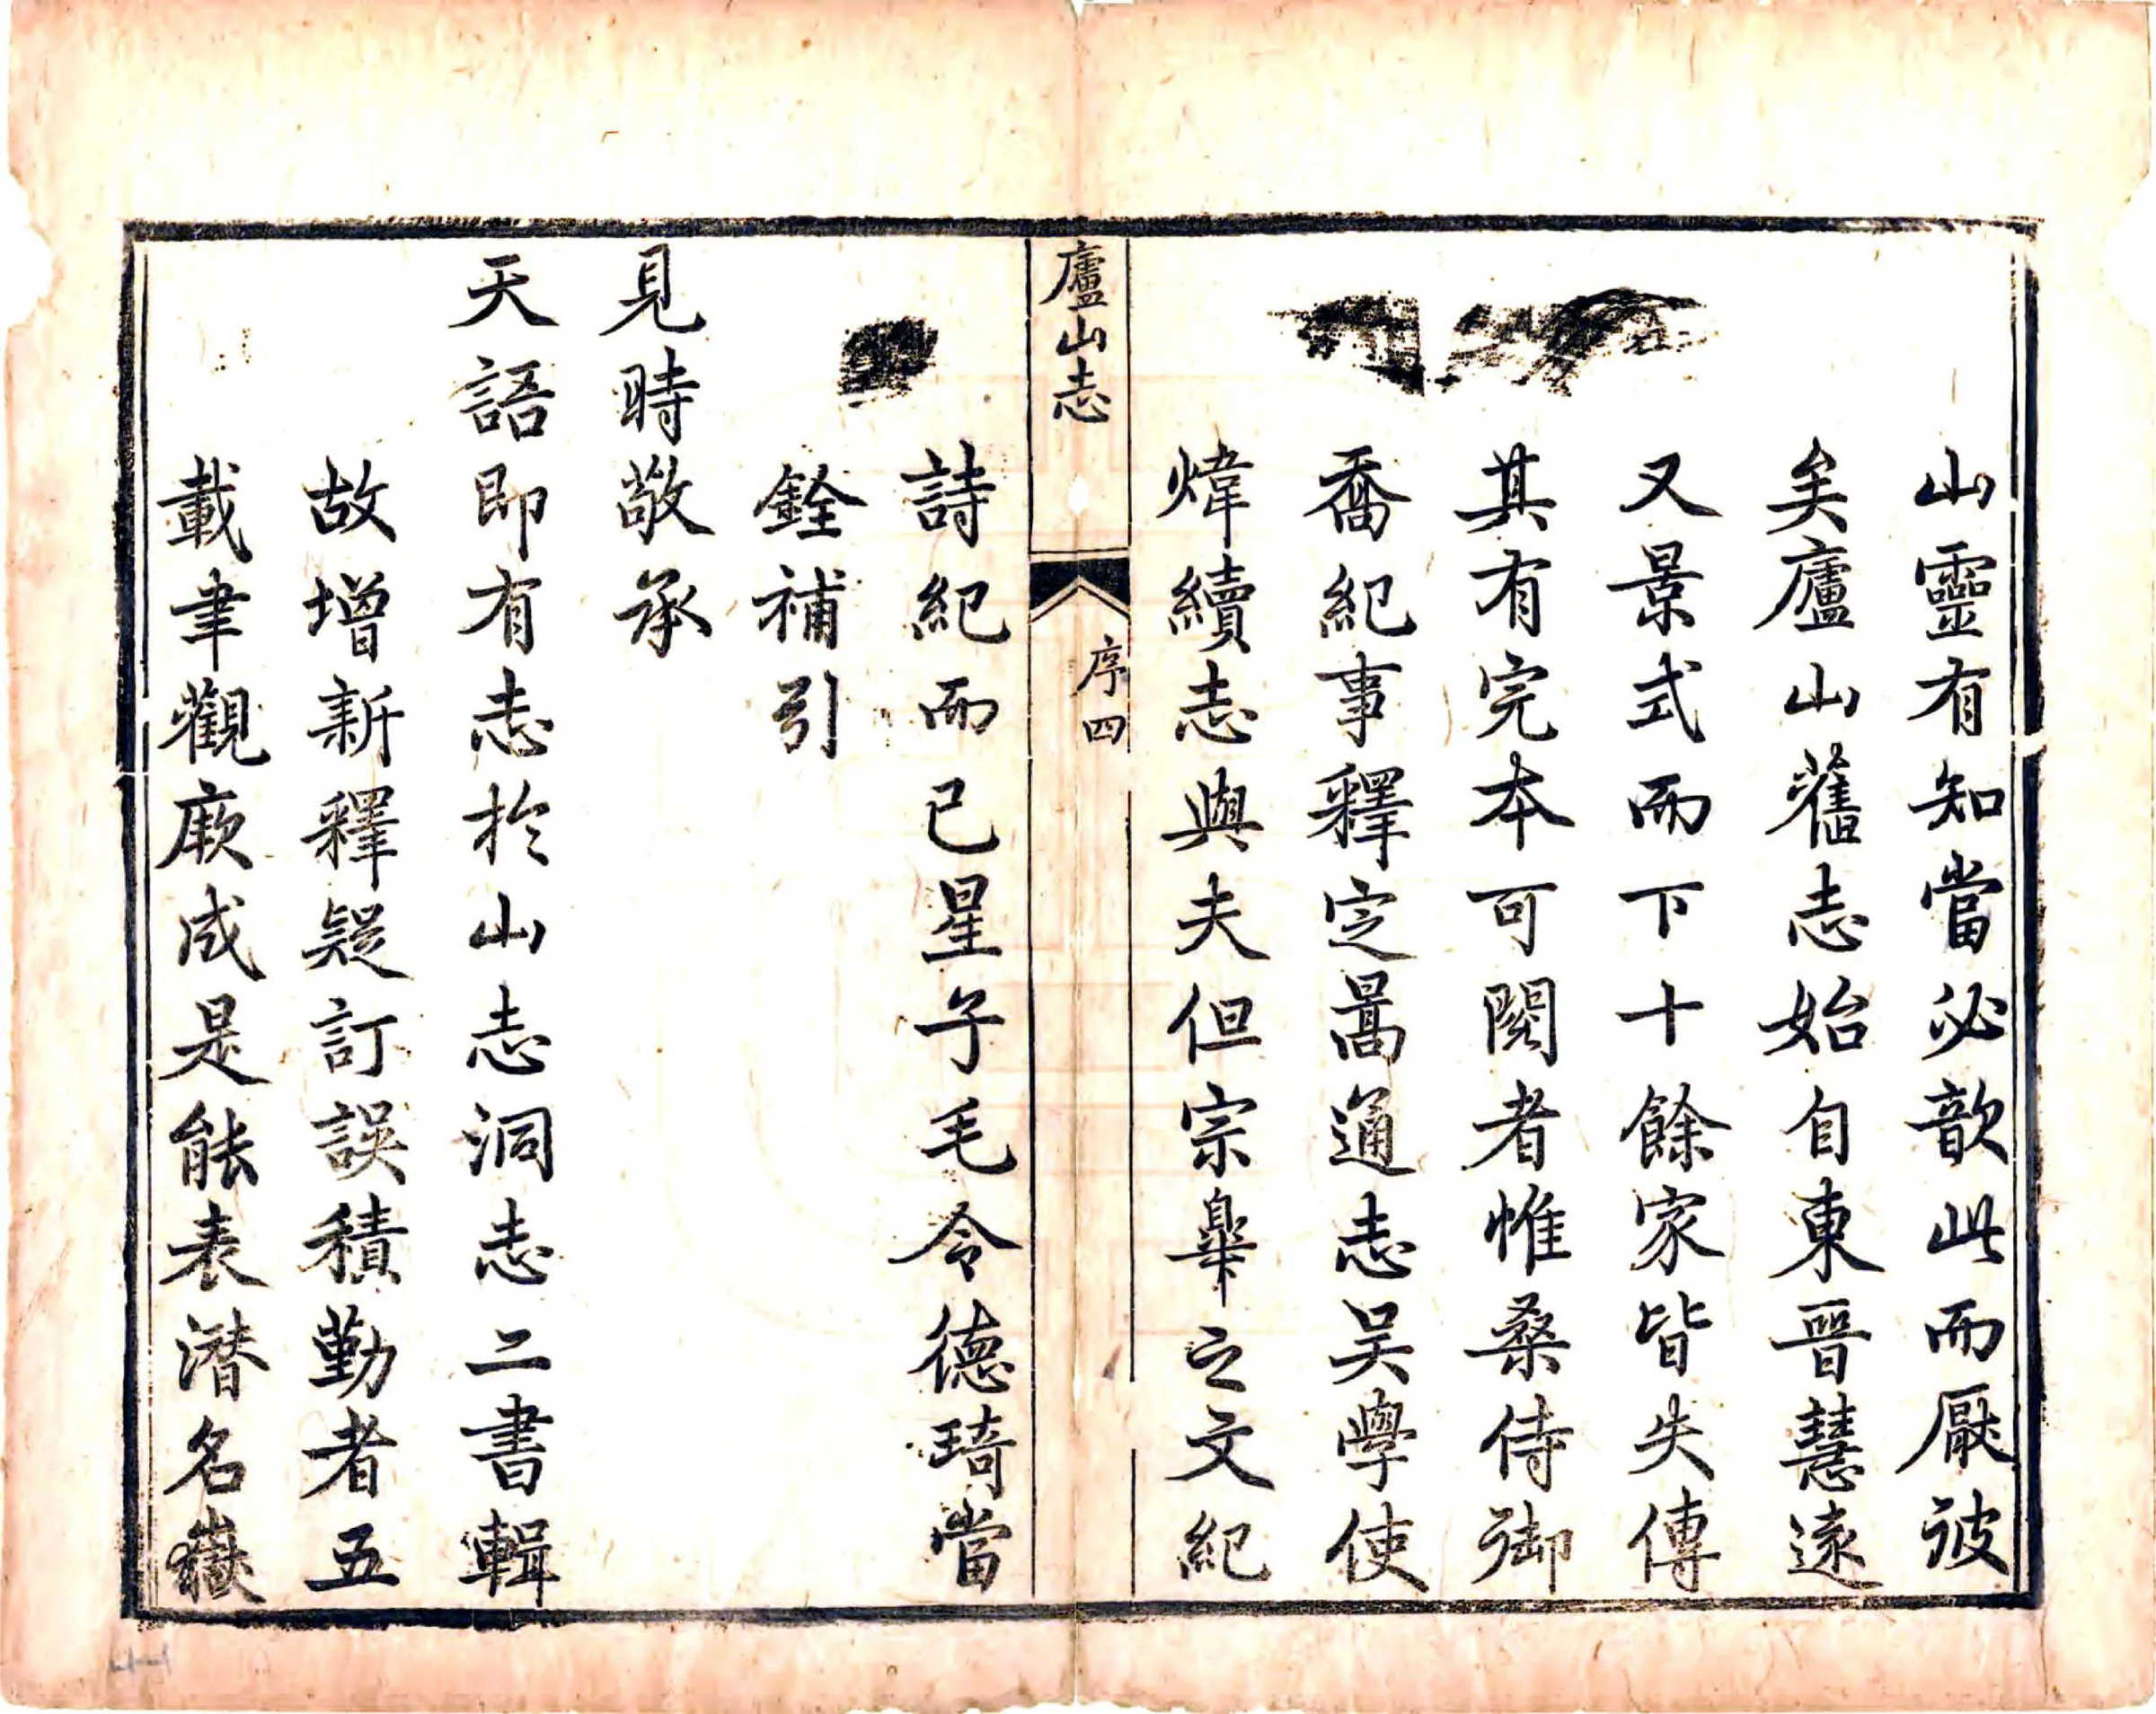 山靈有知當必歆此而厭彼
矣廬山舊志始自東晉慧遠
又景式而下十餘家皆失傳
其有完本可閱者惟桑侍御
喬紀事釋定暠通志吴學使
煒續志與夫但宗臯之文紀
廬山志
序四
詩紀而已星子毛令德琦當
銓補引
見時敬承
天語即有志於山志洞志二書輯
故增新釋疑訂誤積勤者五
載聿觀厥成是能表潜名嶽